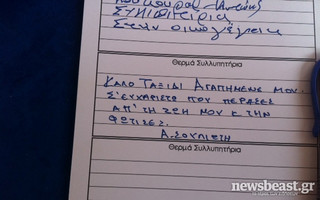 ΣΥΛΛΥΠΗΤΗΡΙΑ
Στην οικογένεια
Θερμά Συλλυπητήρια
ΚΑΛΟ ΤΑΞΙΔΙ ΑΓΑΠΗΜΕΝΕ ΜΟΥ.
Σ'ΕΥΧΑΡΙΣΤΩ ΠΟΥ ΠΕΡΑΣΕΣ
ΑΠ' ΤΗ ΖΩΗ ΜΟΥ Κ ΤΗΝ
ΦΩΤΙΣΕΣ.
Α. ΣΟΥΛΙΩΤΗ
Θερμά Συλλυπητήρια
newsbeast.gr